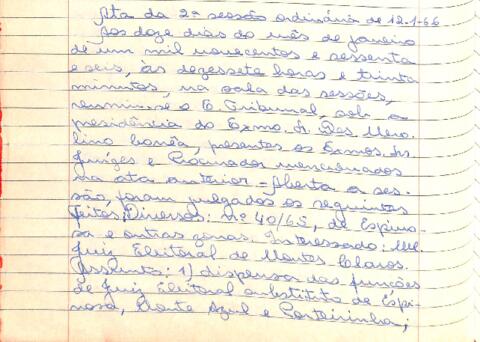 Ata da 2ª sessão ordinária de 12-1-66
Aos doze dias do mês de janeiro
de um mil novecentos e sessenta
e seis, às dezessete horas e trinta
minutos, na sala das sessões,
reuniu-se o E. Tribunal, sob a
presidência do Exmo. Sr. Des. Mero-
lino Corrêa, presentes os Exmos. Srs.
Juízes e Procurador mencionados
na ata anterior = Aberta a ses-
são, foram julgados os seguintes
feitos, Diversos: nº 40/65, de Espino-
sa e outras zonas. Interessado: MM.
Juiz Eleitoral de Montes Claros.
Assunto: 1) dispensa das funções
de Juiz Eleitoral substituto de Espi-
nosa, Monte Azul e Porteirinha;